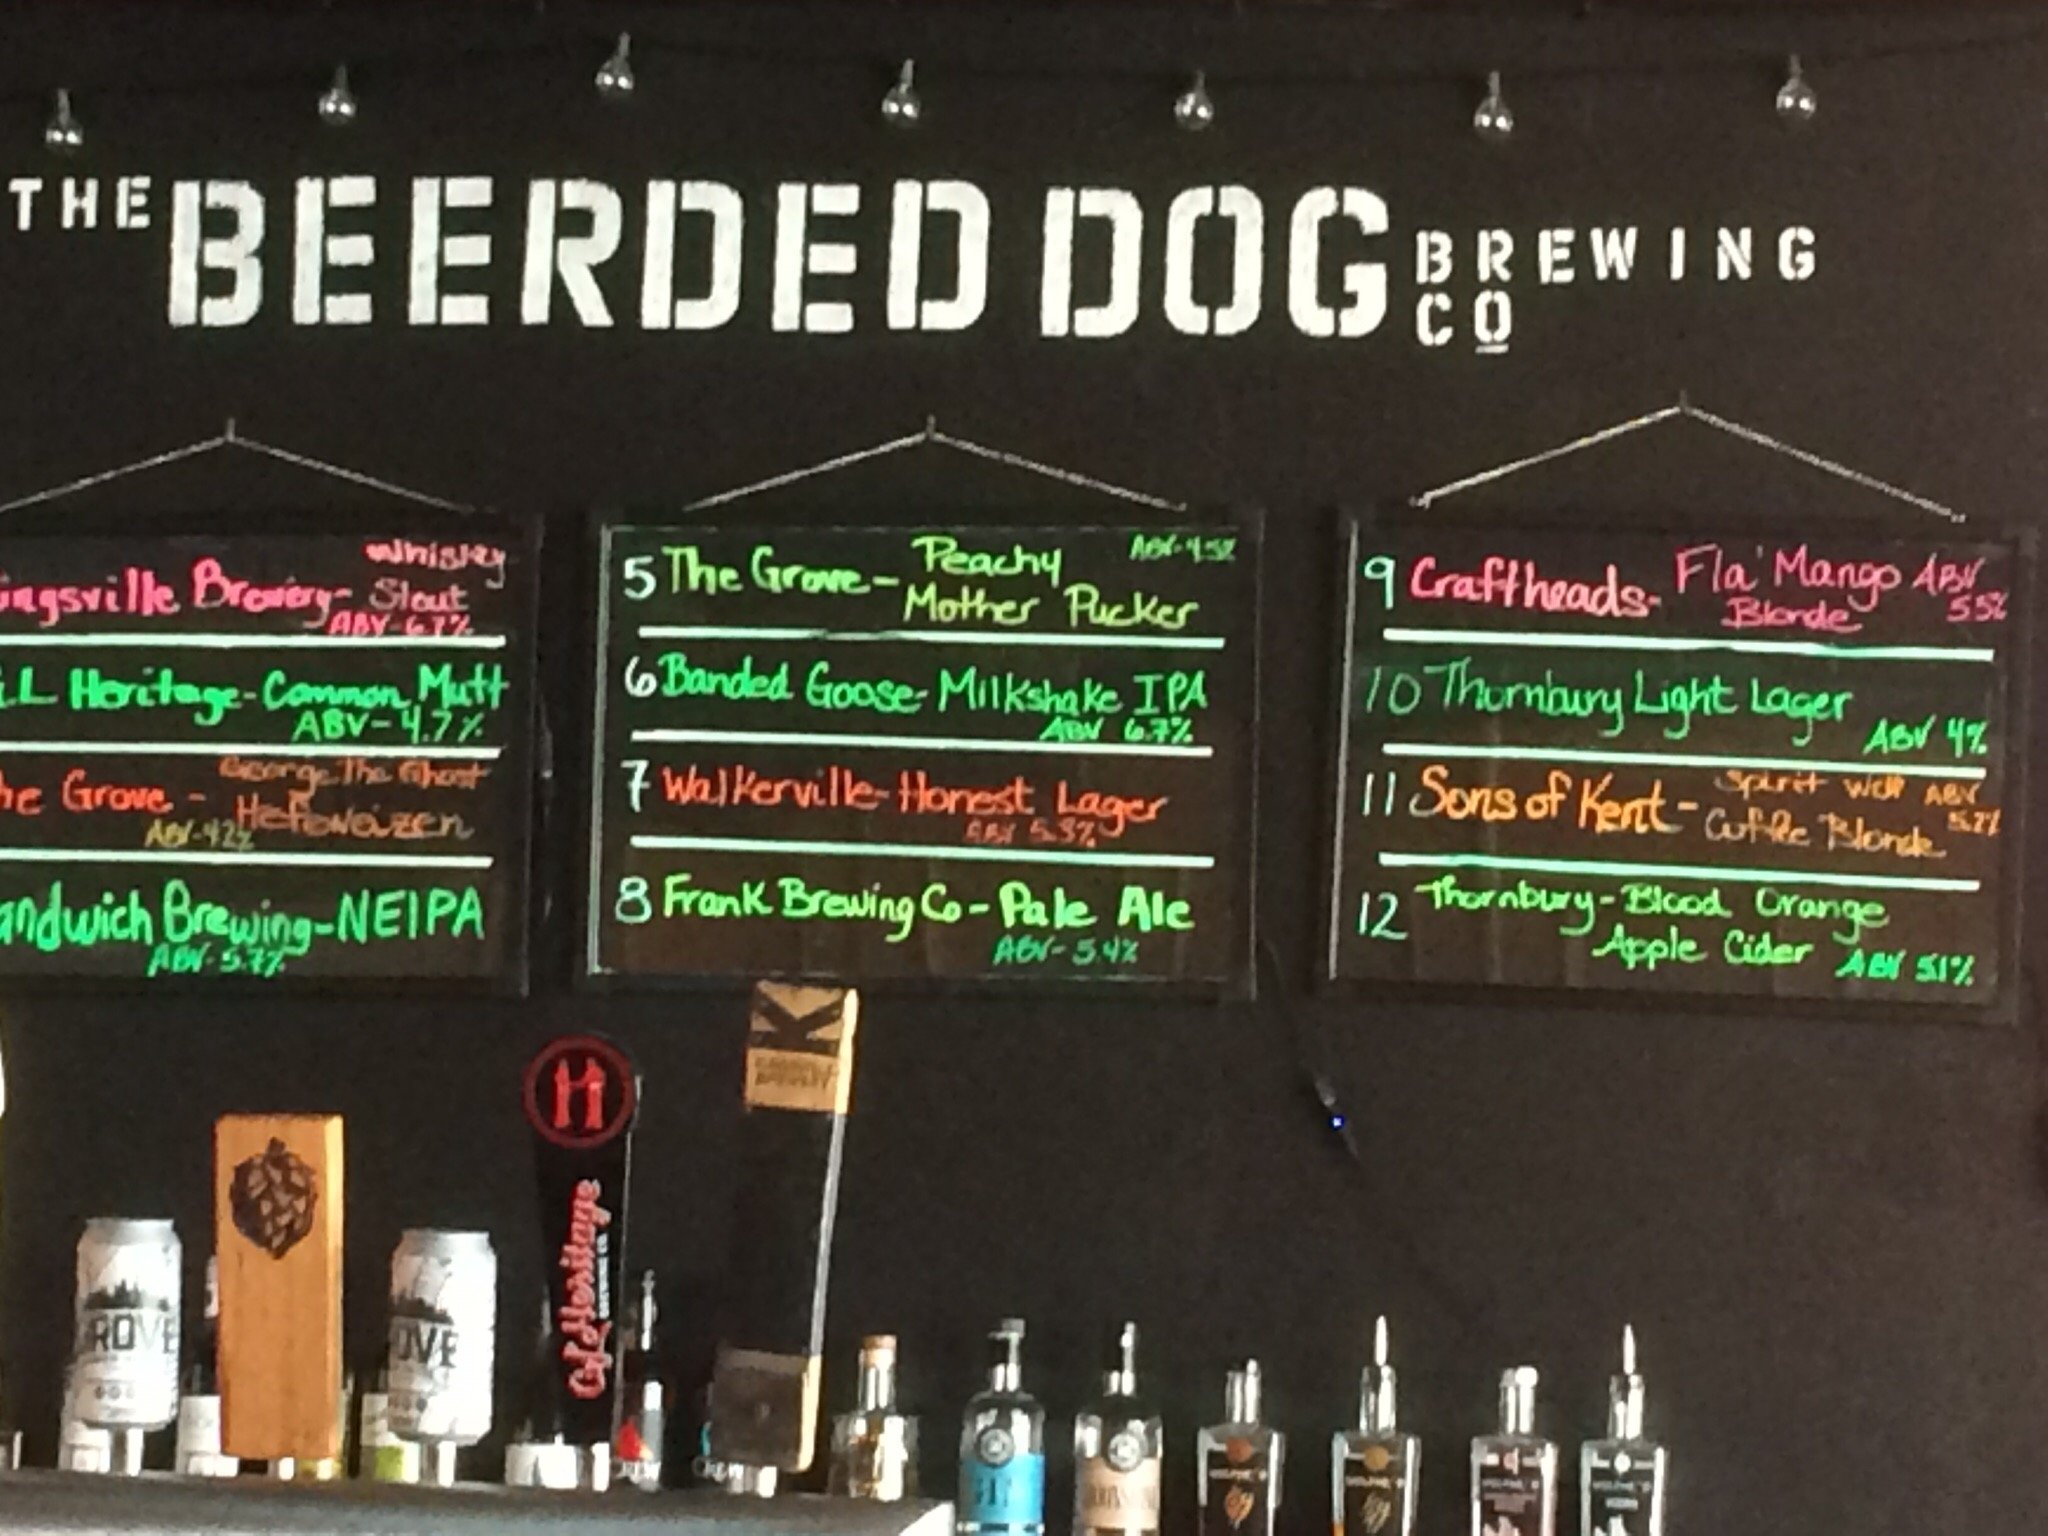 THE BEERDED DOG BREWING
CO
ingsville Brewery- Whiskey
Stout
ABV- 6.7%
G.L Heritage-Common Mutt
ABV- 4.7%
he Grove - George The Ghost
Hefowaizen
ABV-4.2%
andwich Brewing-NEIPA
ABV- 5.7%
5 The Grove- Peachy
Mother Pucker
ABV-4.5%
6 Banded Goose- Milkshake IPA
ABV 6.7%
7 Walkerville-Honest Lager
ABV 5.3%
8 Frank Brewing Co- Pale Ale
ABV- 5.4%
9 Craftheads- Fla' Mango
Blonde
ABV
5.5%
10 Thornbury Light Lager
ABV 4%
11 Sons of Kent- Spirit Well
Coffee Blonde
ABV
5.2%
12 Thornbury-Blood Orange
Apple Cider ABV 5.1%
K
H
GL Heritage
BREWING CO.
GROVE
OVE
CREW
CREW